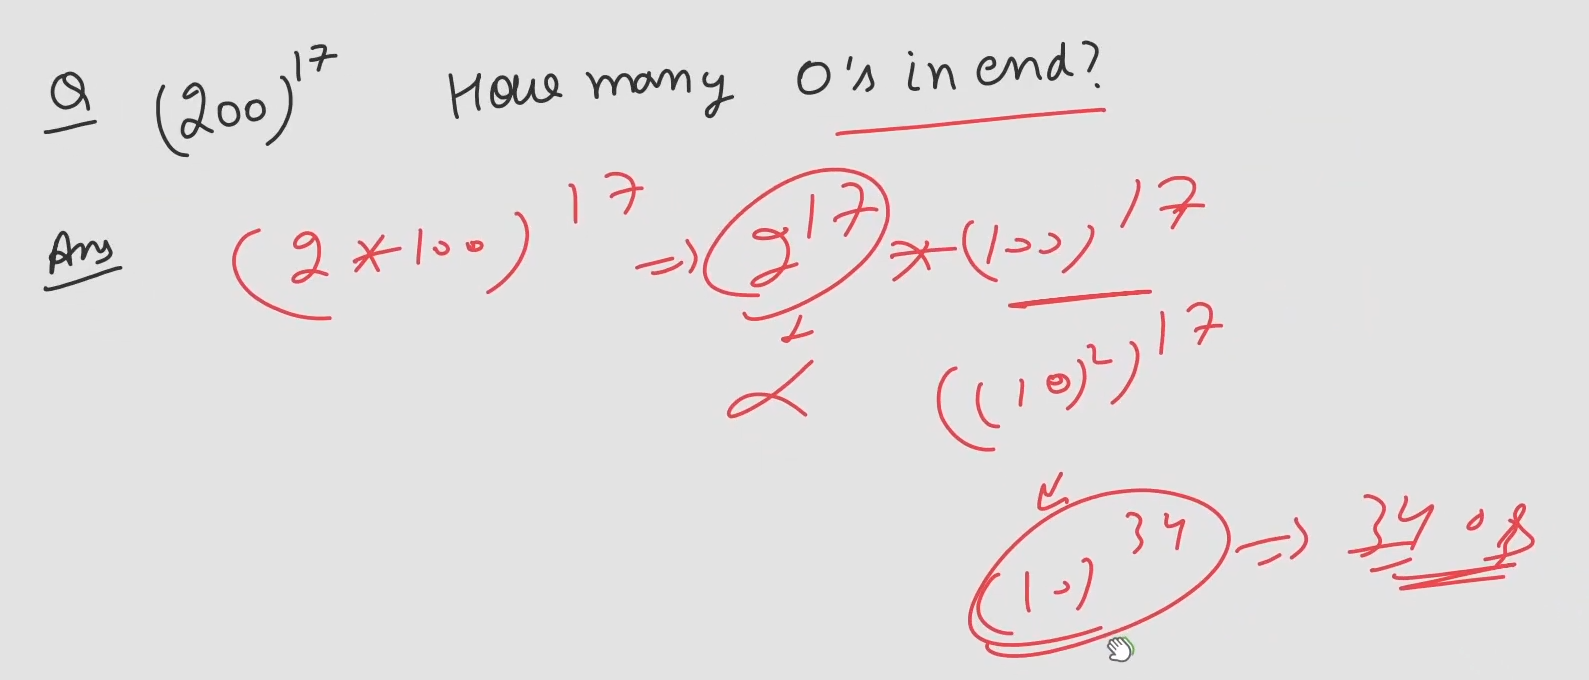 Q (200)^17 How many 0's in end?
Ans (2*100)^17 => 2^17 * (100)^17
((10)^2)^17
(10)^34 => 34 0s